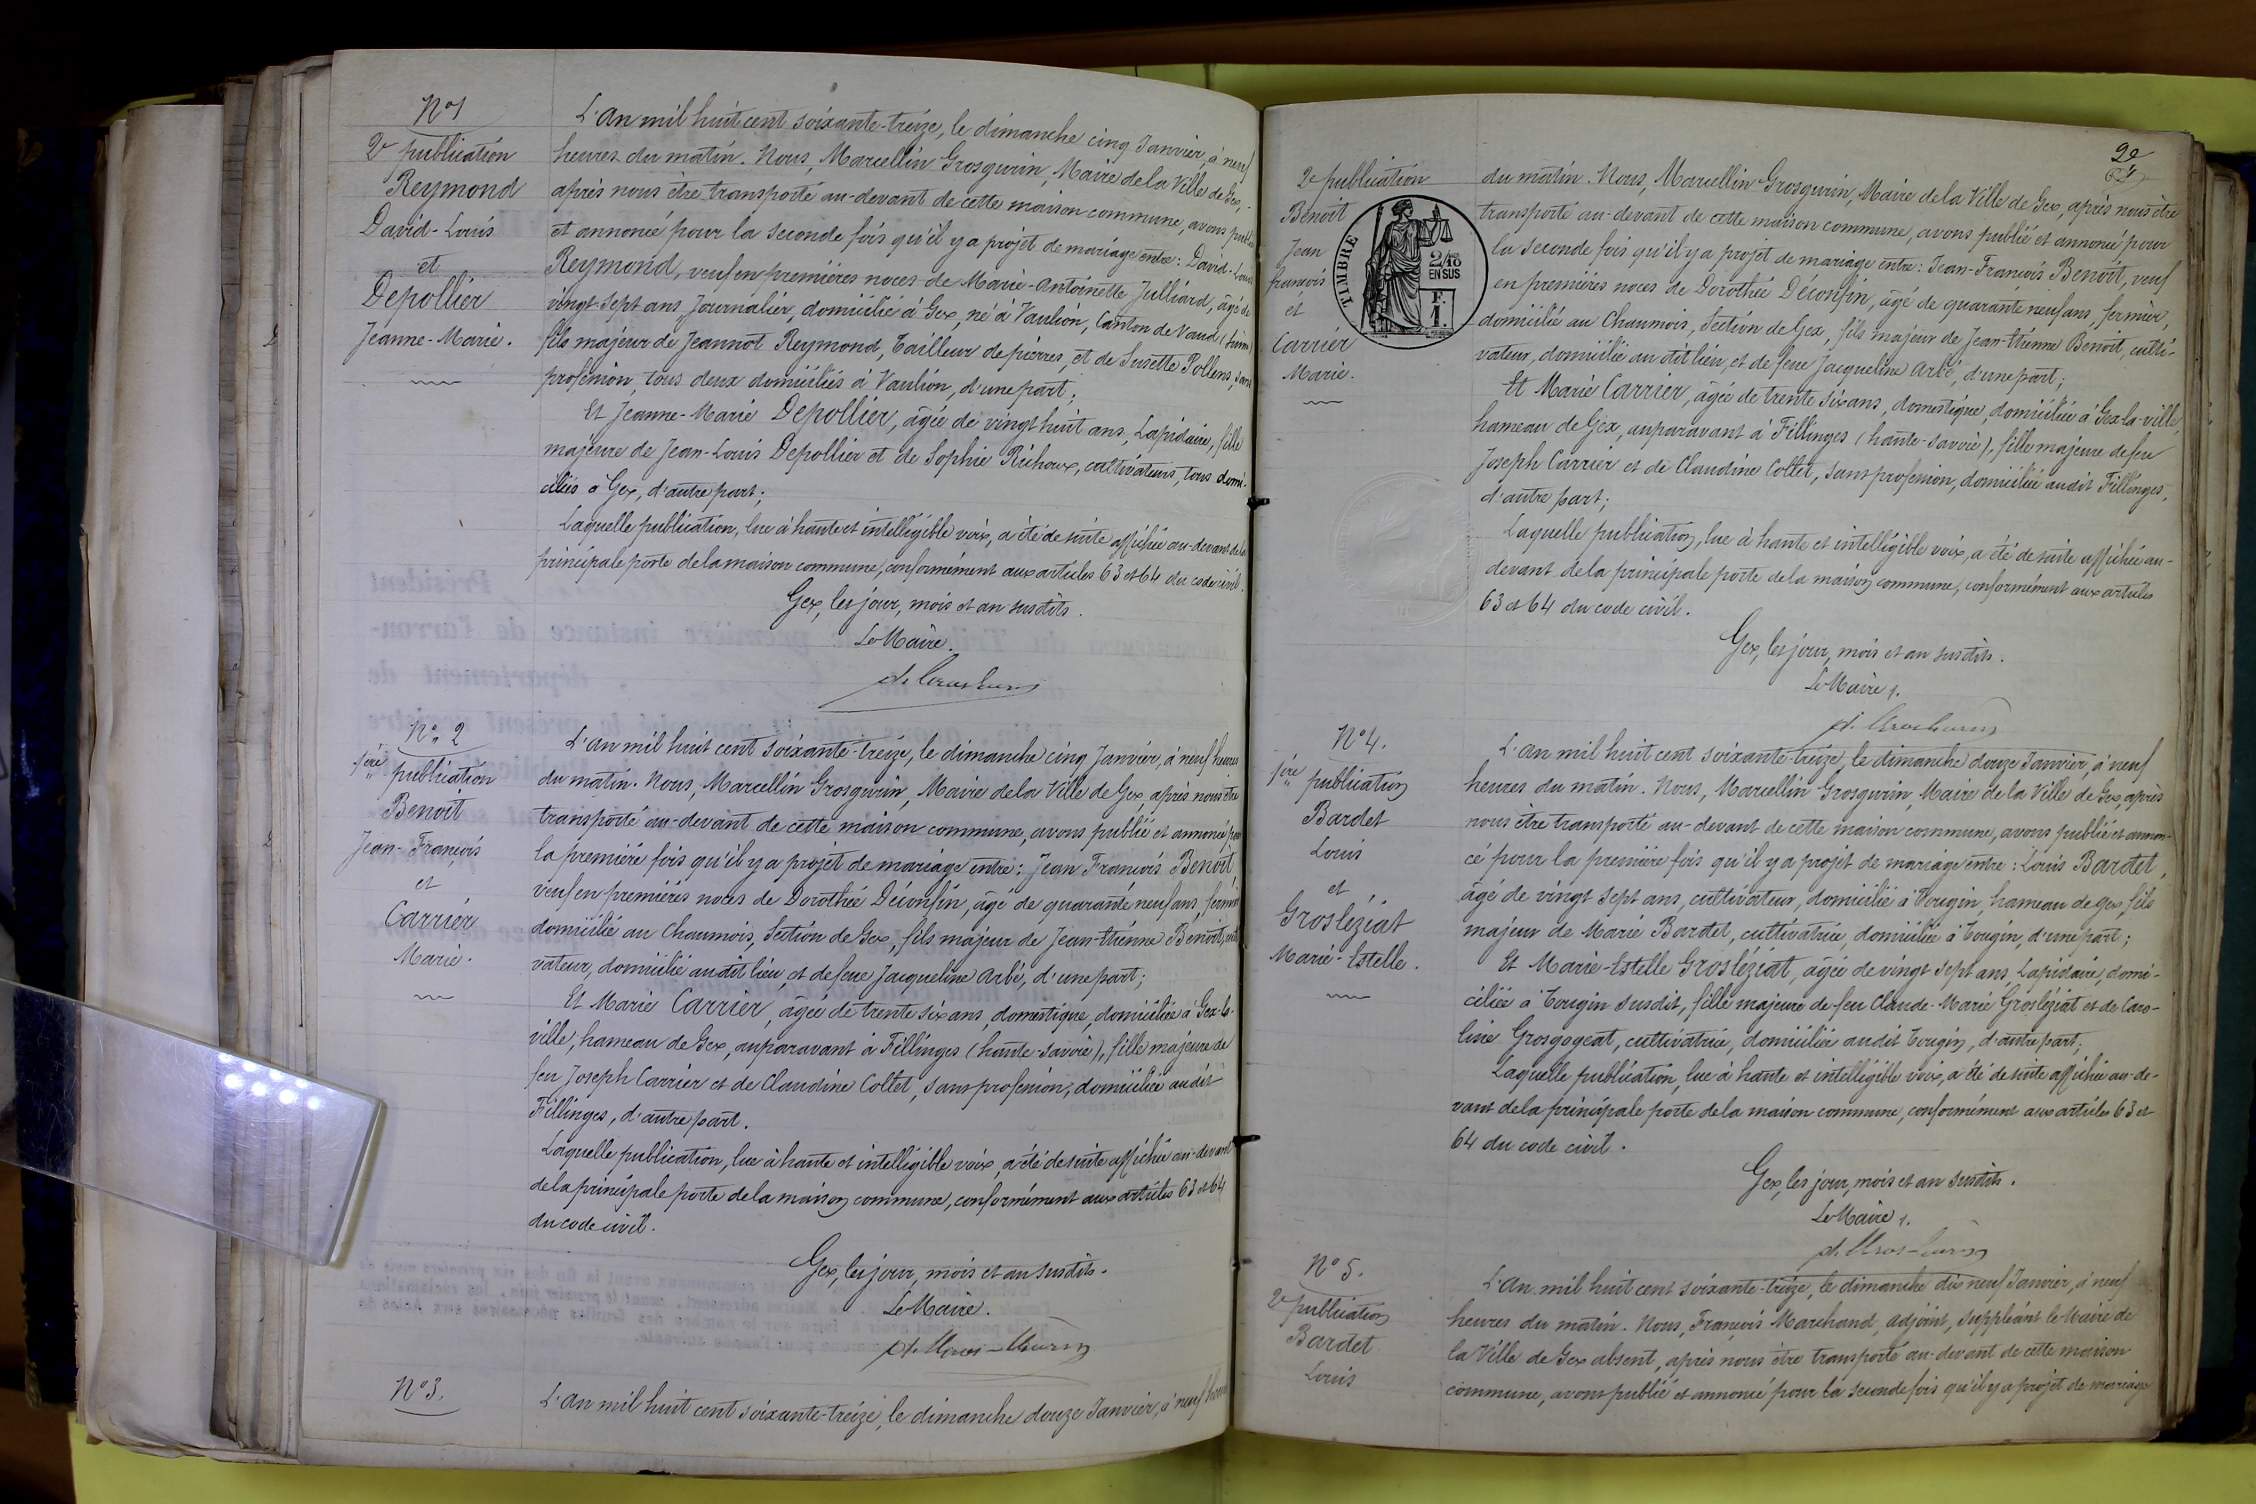 N° 1
2e publication
Reymond
David-Louis
et
Depollier
Jeanne-Marie.
L'An mil huit cent soixante-treize, le dimanche cinq Janvier, à neuf
heures du matin. Nous, Marcellin Grosgurin, Maire de la Ville de Gex,
après nous être transporté au-devant de cette maison commune, avons publié
et annoncé pour la seconde fois qu'il y a projet de mariage entre: David-Louis
Reymond, veuf en premières noces de Marie-Antoinette Julliard, âgé de
vingt-sept ans, Journalier, domicilié à Gex, né à Vaulion, Canton de Vaud (Suisse)
fils majeur de Jeannot Reymond, Tailleur de pierres, et de Susette Pollens, sans
profession, tous deux domiciliés à Vaulion, d'une part;
Et Jeanne-Marie Depollier, âgée de vingt huit ans, Lapidaire, fille
majeure de Jean-Louis Depollier et de Sophie Richoux, cultivateurs, tous domi-
ciliés à Gex, d'autre part;
Laquelle publication, lue à haute et intelligible voix, a été de suite affichée au-devant de la
principale porte de la maison commune, conformément aux articles 63 et 64 du code civil.
Gex, les jour, mois et an susdits.
Le Maire.
N° 2
1ère publication
Benoit
Jean-François
et
Carrier
Marie.
L'an mil huit cent soixante-treize, le dimanche cinq Janvier, à neuf heures
du matin. Nous, Marcellin Grosgurin, Maire de la Ville de Gex, après nous être
transporté au-devant de cette maison commune, avons publié et annoncé pour
la première fois qu'il y a projet de mariage entre: Jean François Benoit,
veuf en premières noces de Dorothée Déconfin, âgé de quarante neuf ans, fermier
domicilié au Chaumois, Section de Gex, fils majeur de Jean-Etienne Benoit, culti
vateur, domicilié au dit lieu, et de feue Jacqueline Arbé, d'une part;
Et Marie Carrier, âgée de trente six ans, domestique, domiciliée à Gex-la-
ville, hameau de Gex, auparavant à Fillinges (haute-savoie), fille majeure de
feu Joseph Carrier et de Claudine Collet, sans profession, domiciliée audit
Fillinges, d'autre part.
Laquelle publication, lue à haute et intelligible voix, a été de suite affichée au-devant
de la principale porte de la maison commune, conformément aux articles 63 et 64
du code civil.
Gex, les jour, mois et an susdits.
Le Maire.
N° 3.
L'An mil huit cent soixante-treize, le dimanche douze Janvier, à neuf heures
2e
2e publication
Benoit
Jean
françois
et
Carrier
Marie.
TIMBRE
2/10
EN SUS
F.
1.
du matin. Nous, Marcellin Grosgurin, Maire de la Ville de Gex, après nous être
transporté au-devant de cette maison commune, avons publié et annoncé pour
la seconde fois qu'il y a projet de mariage entre: Jean-François Benoit, veuf
en premières noces de Dorothée Déconfin, âgé de quarante neuf ans, fermier,
domicilié au Chaumois, Section de Gex, fils majeur de Jean-Etienne Benoit, culti-
vateur, domicilié au dit lieu, et de feue Jacqueline Arbé, d'une part;
Et Marie Carrier, âgée de trente six ans, domestique, domiciliée à Gex-la-ville,
hameau de Gex, auparavant à Fillinges (haute-savoie), fille majeure de feu
Joseph Carrier et de Claudine Collet, sans profession, domiciliée audit Fillinges,
d'autre part;
Laquelle publication, lue à haute et intelligible voix, a été de suite affichée au-
devant de la principale porte de la maison commune, conformément aux articles
63 et 64 du code civil.
Gex, les jour, mois et an susdits.
Le Maire.
N° 4.
1ère publication
Bardet
Louis
et
Grosléziat
Marie-Estelle.
L'an mil huit cent soixante-treize, le dimanche douze Janvier, à neuf
heures du matin. Nous, Marcellin Grosgurin, Maire de la Ville de Gex, après
nous être transporté au-devant de cette maison commune, avons publié et annon-
cé pour la première fois qu'il y a projet de mariage entre: Louis Bardet,
âgé de vingt sept ans, cultivateur, domicilié à Tougin, hameau de Gex, fils
majeur de Marie Bardet, cultivatrice, domiciliée à Tougin, d'une part;
Et Marie-Estelle Grosléziat, âgée de vingt sept ans, Lapidaire, domi-
ciliée à Tougin susdit, fille majeure de feu Claude-Marie Grosléziat et de Caro-
line Grosgogeat, cultivatrice, domiciliée audit Tougin, d'autre part;
Laquelle publication, lue à haute et intelligible voix, a été de suite affichée au-de-
vant de la principale porte de la maison commune, conformément aux articles 63 et
64 du code civil.
Gex, les jour, mois et an susdits.
Le Maire.
N° 5.
2e publication
Bardet
Louis
L'An mil huit cent soixante-treize, le dimanche dix neuf Janvier, à neuf
heures du matin. Nous, François Marchand, adjoint, suppléant le Maire de
la Ville de Gex absent, après nous être transporté au-devant de cette maison
commune, avons publié et annoncé pour la seconde fois qu'il y a projet de mariage